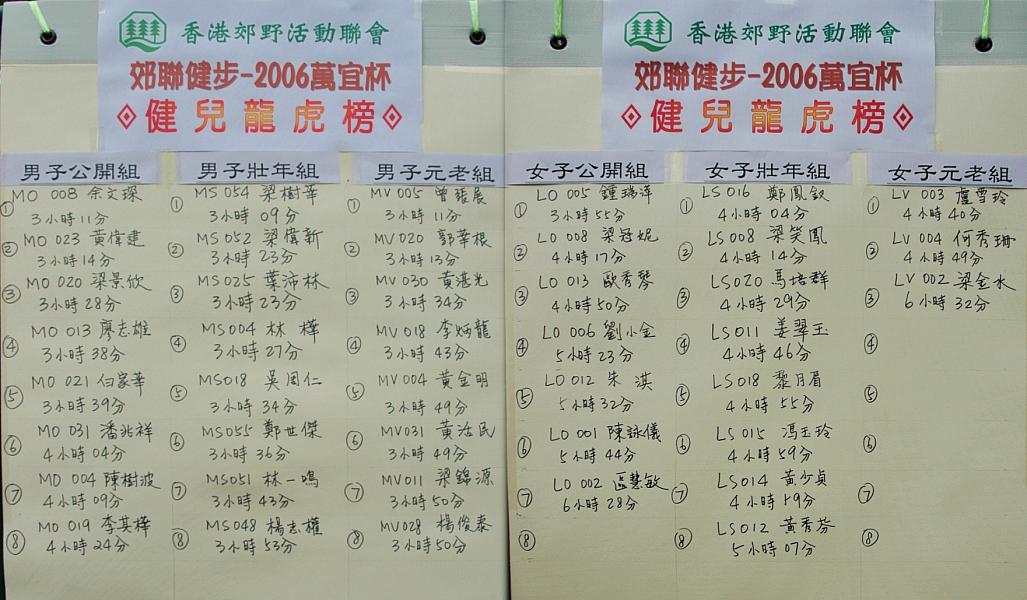 香港郊野活動聯會
郊聯健步-2006萬宜杯
健兒龍虎榜
男子公開組
① MO 008 余文琛
3小時11分
② MO 023 黃偉建
3小時14分
③ MO 020 梁景欣
3小時28分
④ MO 013 廖志雄
3小時38分
⑤ MO 021 何家華
3小時39分
⑥ MO 031 潘兆祥
4小時04分
⑦ MO 004 陳樹波
4小時09分
⑧ MO 019 李其樺
4小時24分
男子壯年組
① MS 054 梁樹華
3小時09分
② MS 052 梁偉新
3小時23分
③ MS 025 葉沛林
3小時23分
④ MS 004 林樺
3小時27分
⑤ MS 018 吳国仁
3小時34分
⑥ MS 055 鄭世傑
3小時36分
⑦ MS 051 林一鳴
3小時43分
⑧ MS 048 楊志權
3小時53分
男子元老組
① MV 005 曾發展
3小時11分
② MV 020 郭華根
3小時13分
③ MV 030 黃湛光
3小時34分
④ MV 018 李炳龍
3小時43分
⑤ MV 004 黃金明
3小時49分
⑥ MV 031 黃沽民
3小時49分
⑦ MV 011 梁錦源
3小時50分
⑧ MV 028 楊俊泰
3小時50分
香港郊野活動聯會
郊聯健步-2006萬宜杯
健兒龍虎榜
女子公開組
① LO 005 鍾瑞萍
3小時55分
② LO 008 梁冠妮
4小時17分
③ LO 013 歐秀琴
4小時50分
④ LO 006 劉小金
5小時23分
⑤ LO 012 朱淇
5小時32分
⑥ LO 001 陳詠儀
5小時44分
⑦ LO 002 區慧敏
6小時28分
⑧
女子壯年組
① LS 016 鄭鳳釵
4小時04分
② LS 008 梁笑鳳
4小時14分
③ LS 020 馬培群
4小時29分
④ LS 011 姜翠玉
4小時46分
⑤ LS 018 黎月眉
4小時55分
⑥ LS 015 馮玉玲
4小時59分
⑦ LS 014 黃少貞
4小時59分
⑧ LS 012 黃秀芬
5小時07分
女子元老組
① LV 003 盧雪玲
4小時40分
② LV 004 何秀珊
4小時49分
③ LV 002 梁金水
6小時32分
④
⑤
⑥
⑦
⑧